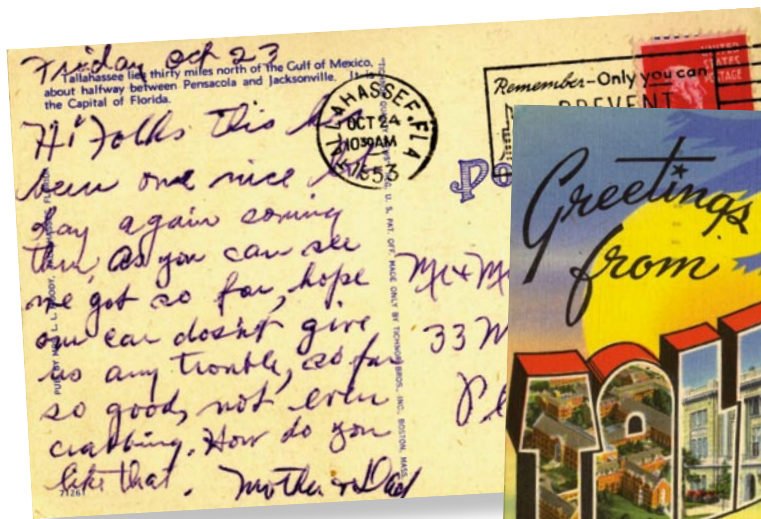 Friday Oct 23
Tallahassee lies thirty miles north of the Gulf of Mexico,
about halfway between Pensacola and Jacksonville. It is
the Capital of Florida.
Hi Folks this has
been one nice hot
day again coming
thru, as you can see
we got so far, hope
our car dosn't give
us any trouble, so far
so good, not even
crabbing. How do you
like that.
Mother & Dad
71261
TALLAHASSEE, FLA
OCT 24
10 30 AM
1953
Remember-Only you can
PREVENT
UNITED
STATES
POSTAGE
PO
Mr & M
33 M
Pe
U. S. PAT. OFF. MADE ONLY BY TICHNOR BROS., INC., BOSTON, MASS.
Greetings
from
TALL